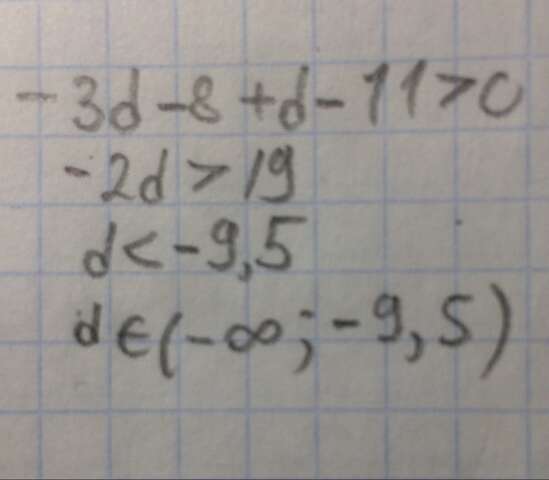 -3d-8+d-11>0
-2d>19
d<-9,5
d∈(-∞;-9,5)